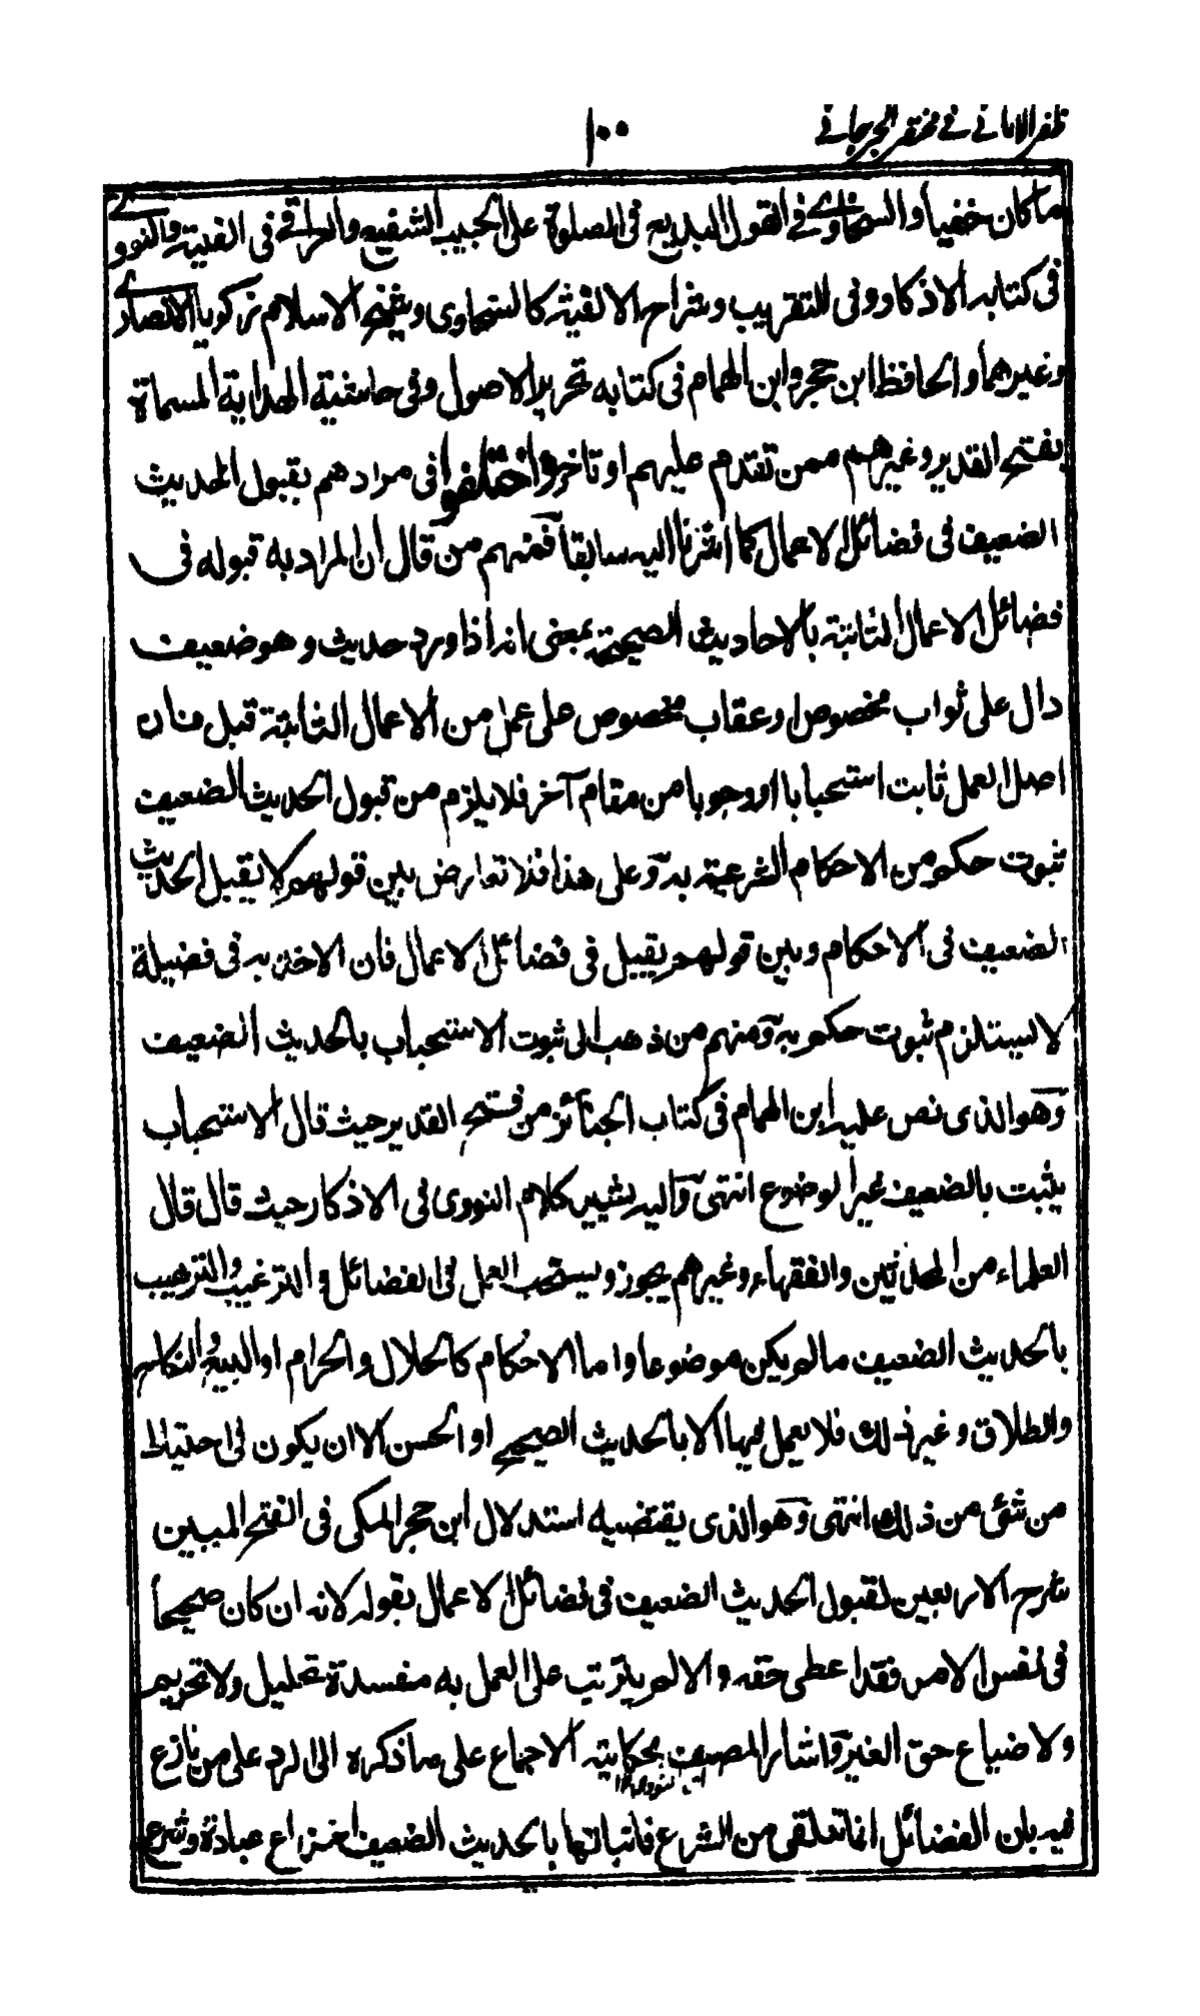 ظفر الامانی فی مختصر الجرجانی
١٠٠
ما كان خفيا والسخاوی فی القول البديع فی الصلوة علی الحبيب الشفيع والعراقی فی الفيته والنووی
فی كتابه الاذكار وفی التقريب وشراح الالفية كالسخاوی وشيخ الاسلام زكريا الانصاری
وغيرهما والحافظ ابن حجر وابن الهمام فی كتابه تحرير الاصول وفی حاشية الهداية المسماة
بفتح القدير وغيرهم ممن تقدم عليهم او تاخر واختلفوا فی مرادهم بقبول الحديث
الضعيف فی فضائل الاعمال كما اشرنا اليه سابقا فمنهم من قال ان المراد به قبوله فی
فضائل الاعمال الثابتة بالاحاديث الصحيحة بمعنی انه اذا ورد حديث وهو ضعيف
دال علی ثواب مخصوص او عقاب مخصوص علی عمل من الاعمال الثابتة قبل فان
اصل العمل ثابت استحبابا او وجوبا من مقام آخر فلا يلزم من قبول الحديث الضعيف
ثبوت حكم من الاحكام الشرعية به وعلی هذا فلا تعارض بين قولهم لا يقبل الحديث
الضعيف فی الاحكام وبين قولهم يقبل فی فضائل الاعمال فان الاخذ به فی فضيلة
لا يستلزم ثبوت حكم به ومنهم من ذهب الی ثبوت الاستحباب بالحديث الضعيف
وهو الذی نص عليه ابن الهمام فی كتاب الجنائز من فتح القدير حيث قال الاستحباب
يثبت بالضعيف غير الموضوع انتهی واليه يشير كلام النووی فی الاذكار حيث قال قال
العلماء من المحدثين والفقهاء وغيرهم يجوز ويستحب العمل فی الفضائل و الترغيب والترهيب
بالحديث الضعيف ما لم يكن موضوعا واما الاحكام كالحلال والحرام او البيع والنكاح
والطلاق وغير ذلك فلا يعمل فيها الا بالحديث الصحيح او الحسن الا ان يكون فی احتياط
من شئ من ذلك انتهی وهو الذی يقتضيه استدلال ابن حجر المكی فی الفتح المبين
شرح الاربعين لقبول الحديث الضعيف فی فضائل الاعمال بقوله لانه ان كان صحيحا
فی نفس الامر فقد اعطی حقه والا لم يترتب علی العمل به مفسدة تحليل ولا تحريم
ولا ضياع حق الغير واشار المصنف بحكايته الاجماع علی ما ذكره الی الرد علی من نازع
فيه بان الفضائل انما تتلقی من الشرع فاثباتها بالحديث الضعيف اختراع عبادة وشرع